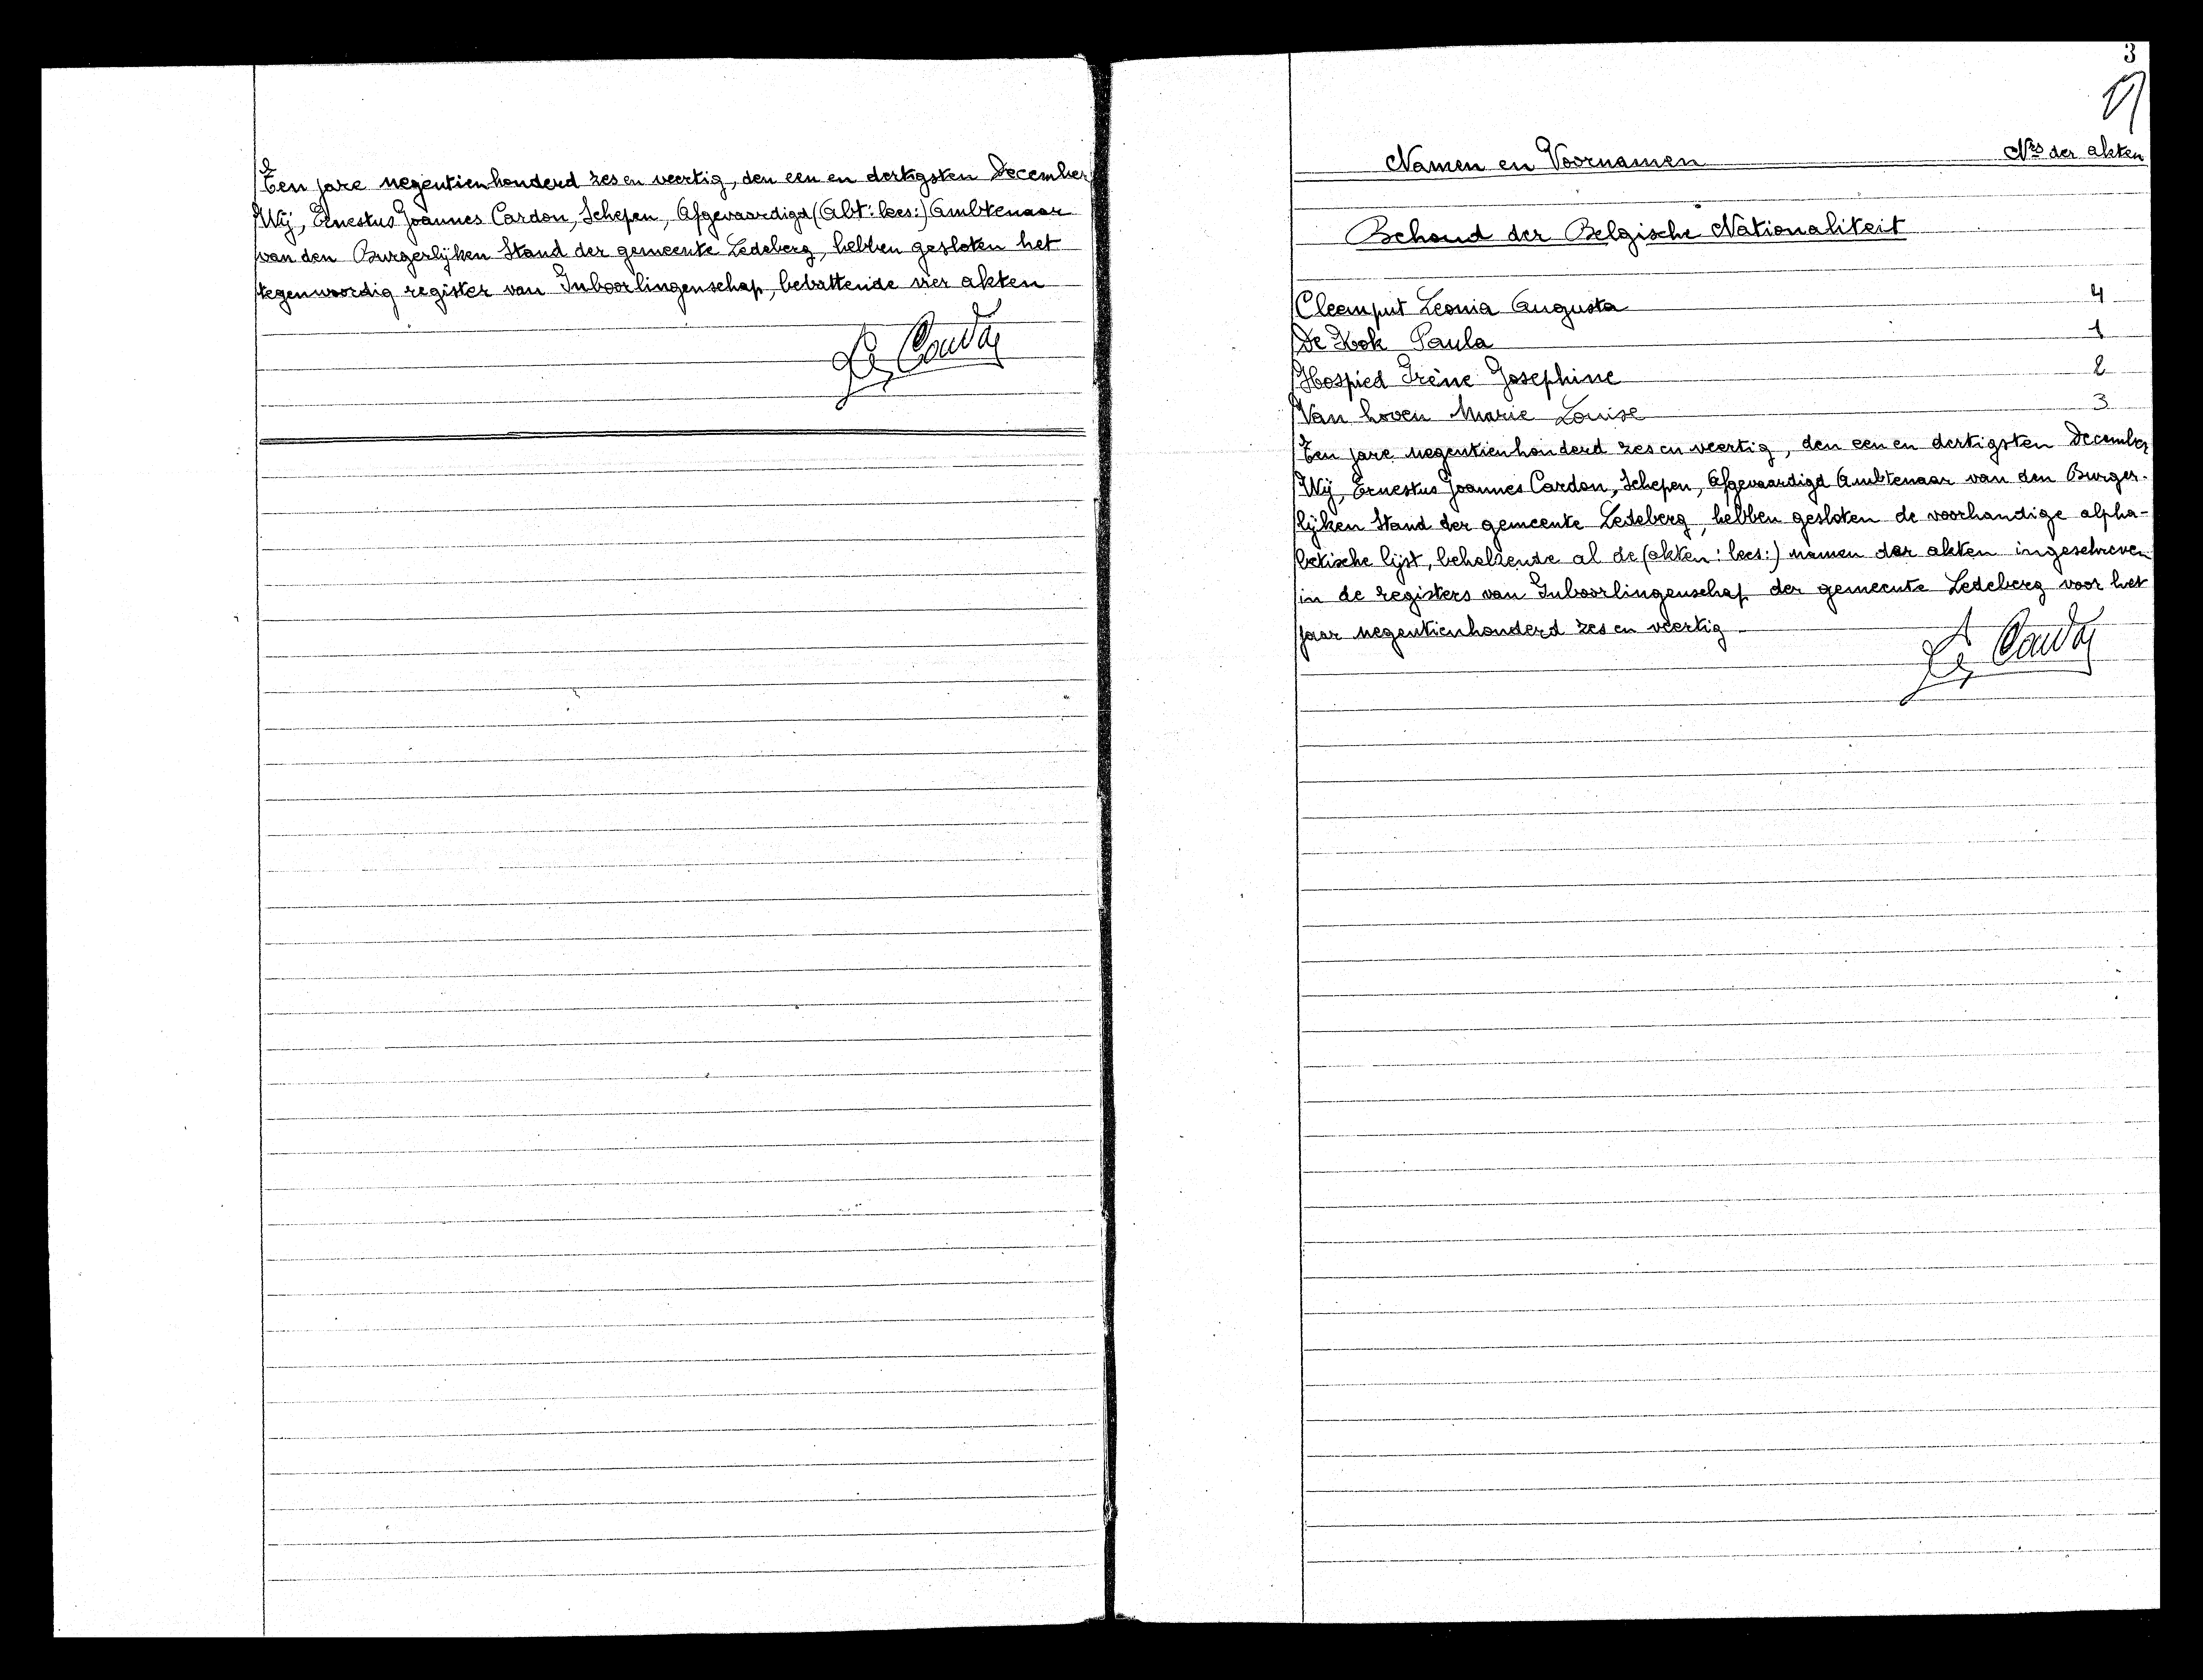 Ten jare negentienhonderd zes en veertig, den een en dertigsten December
Wij, Ernestus Joannes Cardon, Schepen, Afgevaardigd (Abt: lees:) Ambtenaar
van den Burgerlijken Stand der gemeente Ledeberg, hebben gesloten het
tegenwoordig register van Inboorlingenschap, bebattende vier akten
3
Namen en Voornamen Nrs der akten
Behoud der Belgische Nationaliteit
Cleemput Leonia Augusta 4
De Kok Paula 1
Hospied Irène Josephine 2
Van hoven Marie Louise 3
Ten jare negentienhonderd zes en veertig, den een en dertigsten December
Wij, Ernestus Joannes Cardon, Schepen, Afgevaardigd Ambtenaar van den Burger-
lijken Stand der gemeente Ledeberg, hebben gesloten de voorhandige alpha-
betische lijst, behelzende al de (akten: lees:) namen der akten ingeschreven
in de registers van Inboorlingenschap der gemeente Ledeberg voor het
jaar negentienhonderd zes en veertig